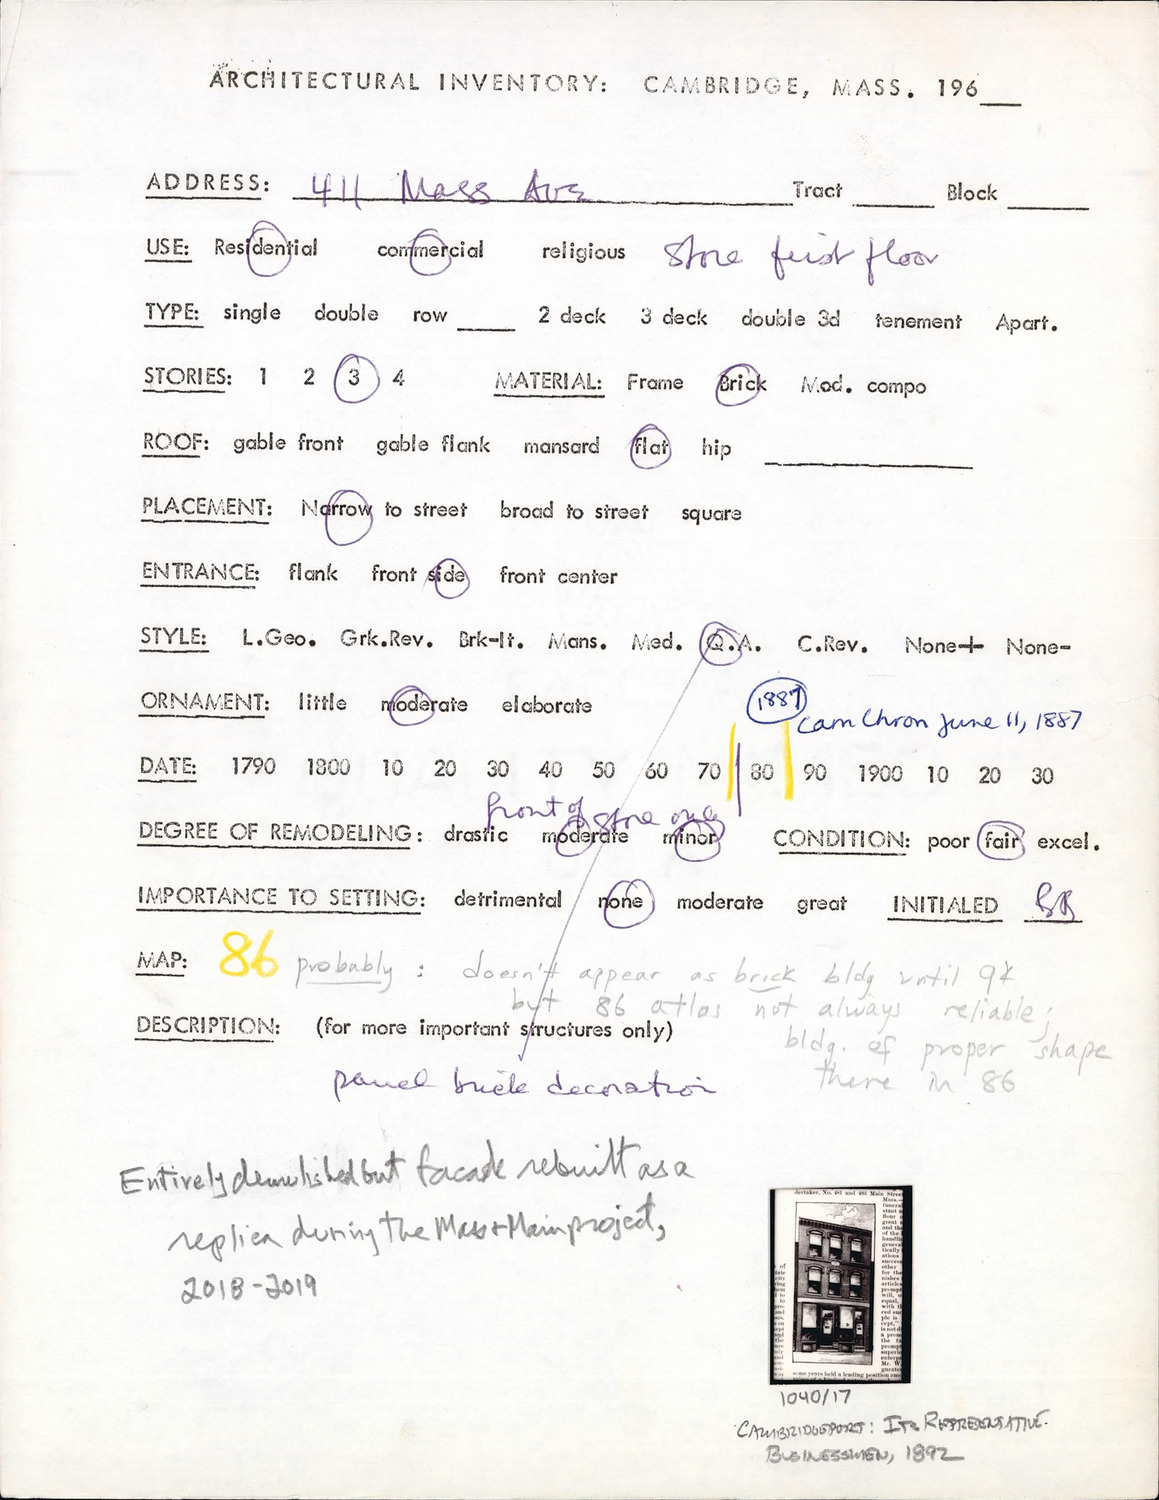 ARCHITECTURAL INVENTORY: CAMBRIDGE, MASS. 196__
ADDRESS: 411 Mass Ave Tract ____ Block ____
USE: Residential commercial religious Store first floor
TYPE: single double row ____ 2 deck 3 deck double 3d tenement Apart.
STORIES: 1 2 3 4 MATERIAL: Frame Brick Mod. compo
ROOF: gable front gable flank mansard flat hip ____
PLACEMENT: Narrow to street broad to street square
ENTRANCE: flank front side front center
STYLE: L.Geo. Grk.Rev. Brk-It. Mans. Med. Q.A. C.Rev. None+ None-
ORNAMENT: little moderate elaborate
1887
Cam Chron June 11, 1887
DATE: 1790 1800 10 20 30 40 50 60 70 80 90 1900 10 20 30
front of store only
DEGREE OF REMODELING: drastic moderate minor CONDITION: poor fair excel.
IMPORTANCE TO SETTING: detrimental none moderate great INITIALED BB
MAP: 86 probably : doesn't appear as brick bldg until 94
but 86 atlas not always reliable;
DESCRIPTION: (for more important structures only)
bldg. of proper shape
there in 86
panel brick decoration
Entirely demolished but facade rebuilt as a
replica during the Mass+Main project,
2018-2019
dertaker, No. 481 and 483 Main Street
some years held a leading position
1040/17
CAMBRIDGEPORT: ITS REPRESENTATIVE
BUSINESSMEN, 1892